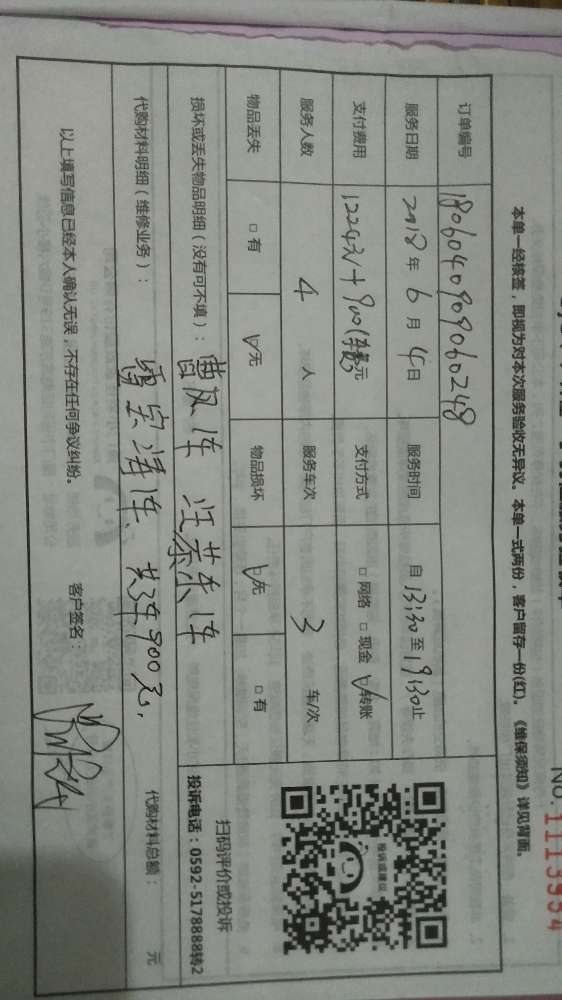 NO.1113954
本单一经核签，即视为对本次服务验收无异议。本单一式两份，客户留存一份(红)。《维保须知》详见背面。
订单编号 1806040909060248
服务日期 2018年6月4日 服务时间 自13:30至19:30止
支付费用 1224元+900(车费元 支付方式 □网络 □现金 √转账
服务人数 4人 服务车次 3车/次
物品丢失 □有 √无 物品损坏 √无 □有
投诉或建议
扫码评价或投诉
投诉电话：0592-5178888转2
损坏或丢失物品明细（没有可不填）：曹凤车 汪慕乐车
代购材料明细（维修业务）： 雷宗泽车、共3车900元， 代购材料总额： 元
以上填写信息已经本人确认无误，不存在任何争议纠纷。 客户签名：